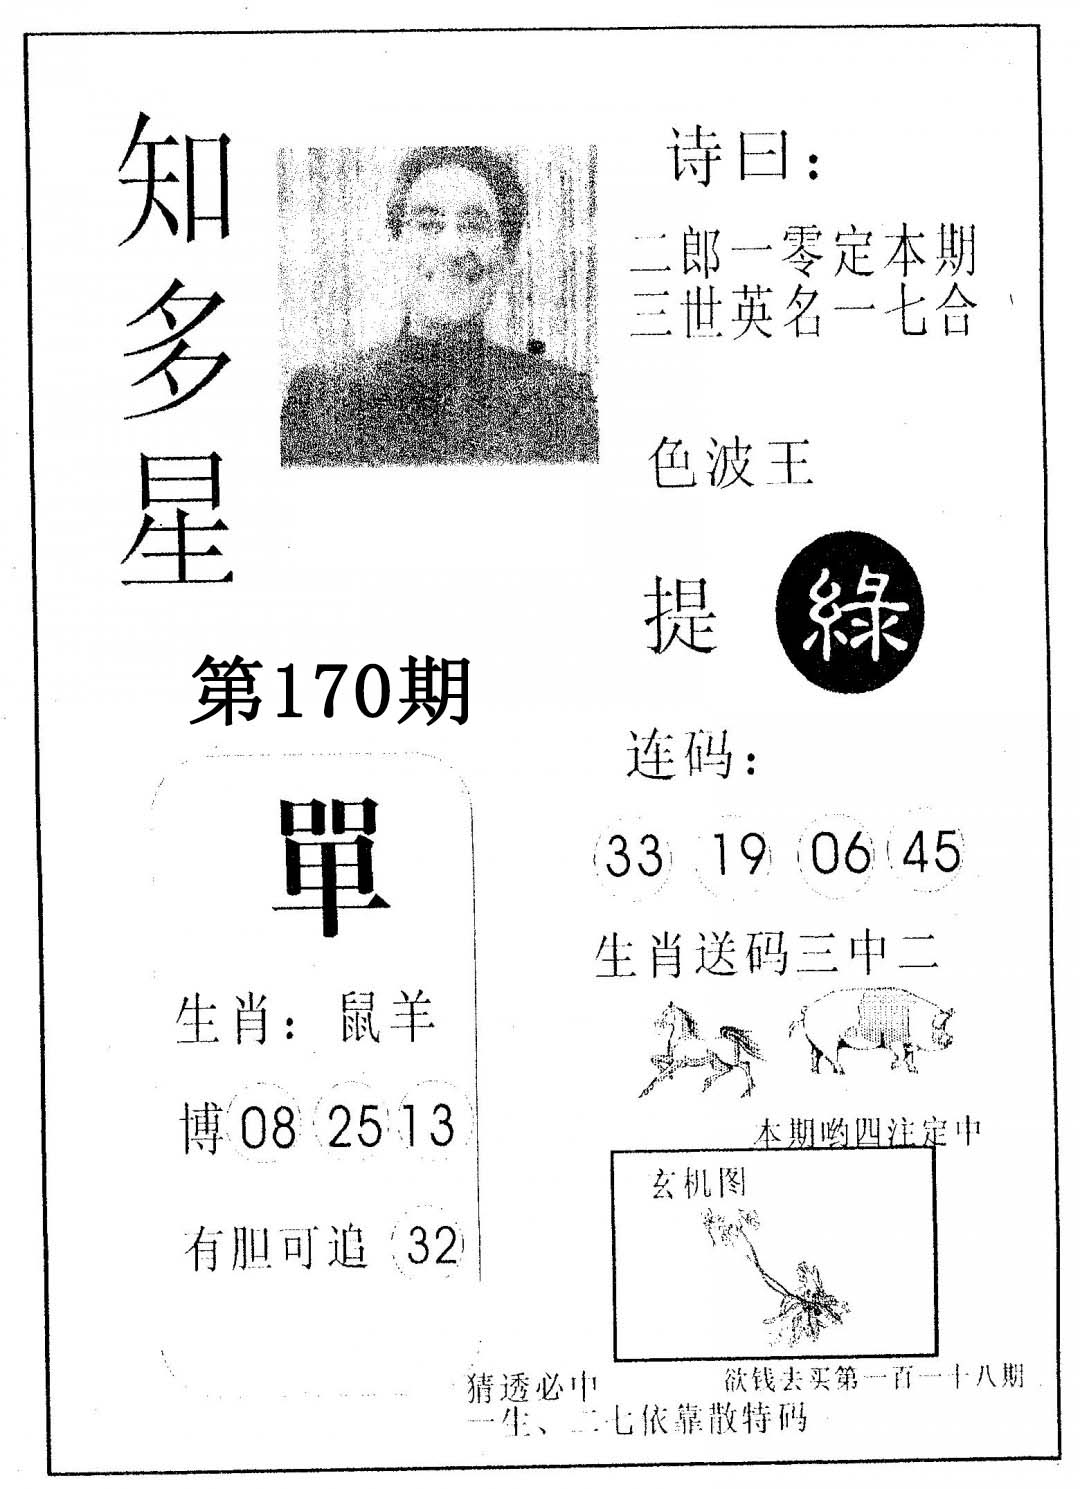 知多星
诗曰：
二郎一零定本期
三世英名一七合
色波王
提 綠
第170期
連码：
單
33 19 06 45
生肖送码三中二
生肖：鼠羊
博 08 25 13
本期哟四注定中
玄机图
有胆可追 32
猜透必中
欲钱去买第一百一十八期
一生、二七依靠散特码